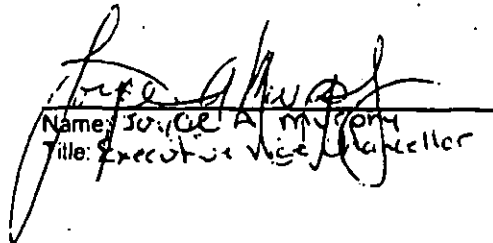 Name: Joyce A Murphy
Title: Executive Vice Chancellor